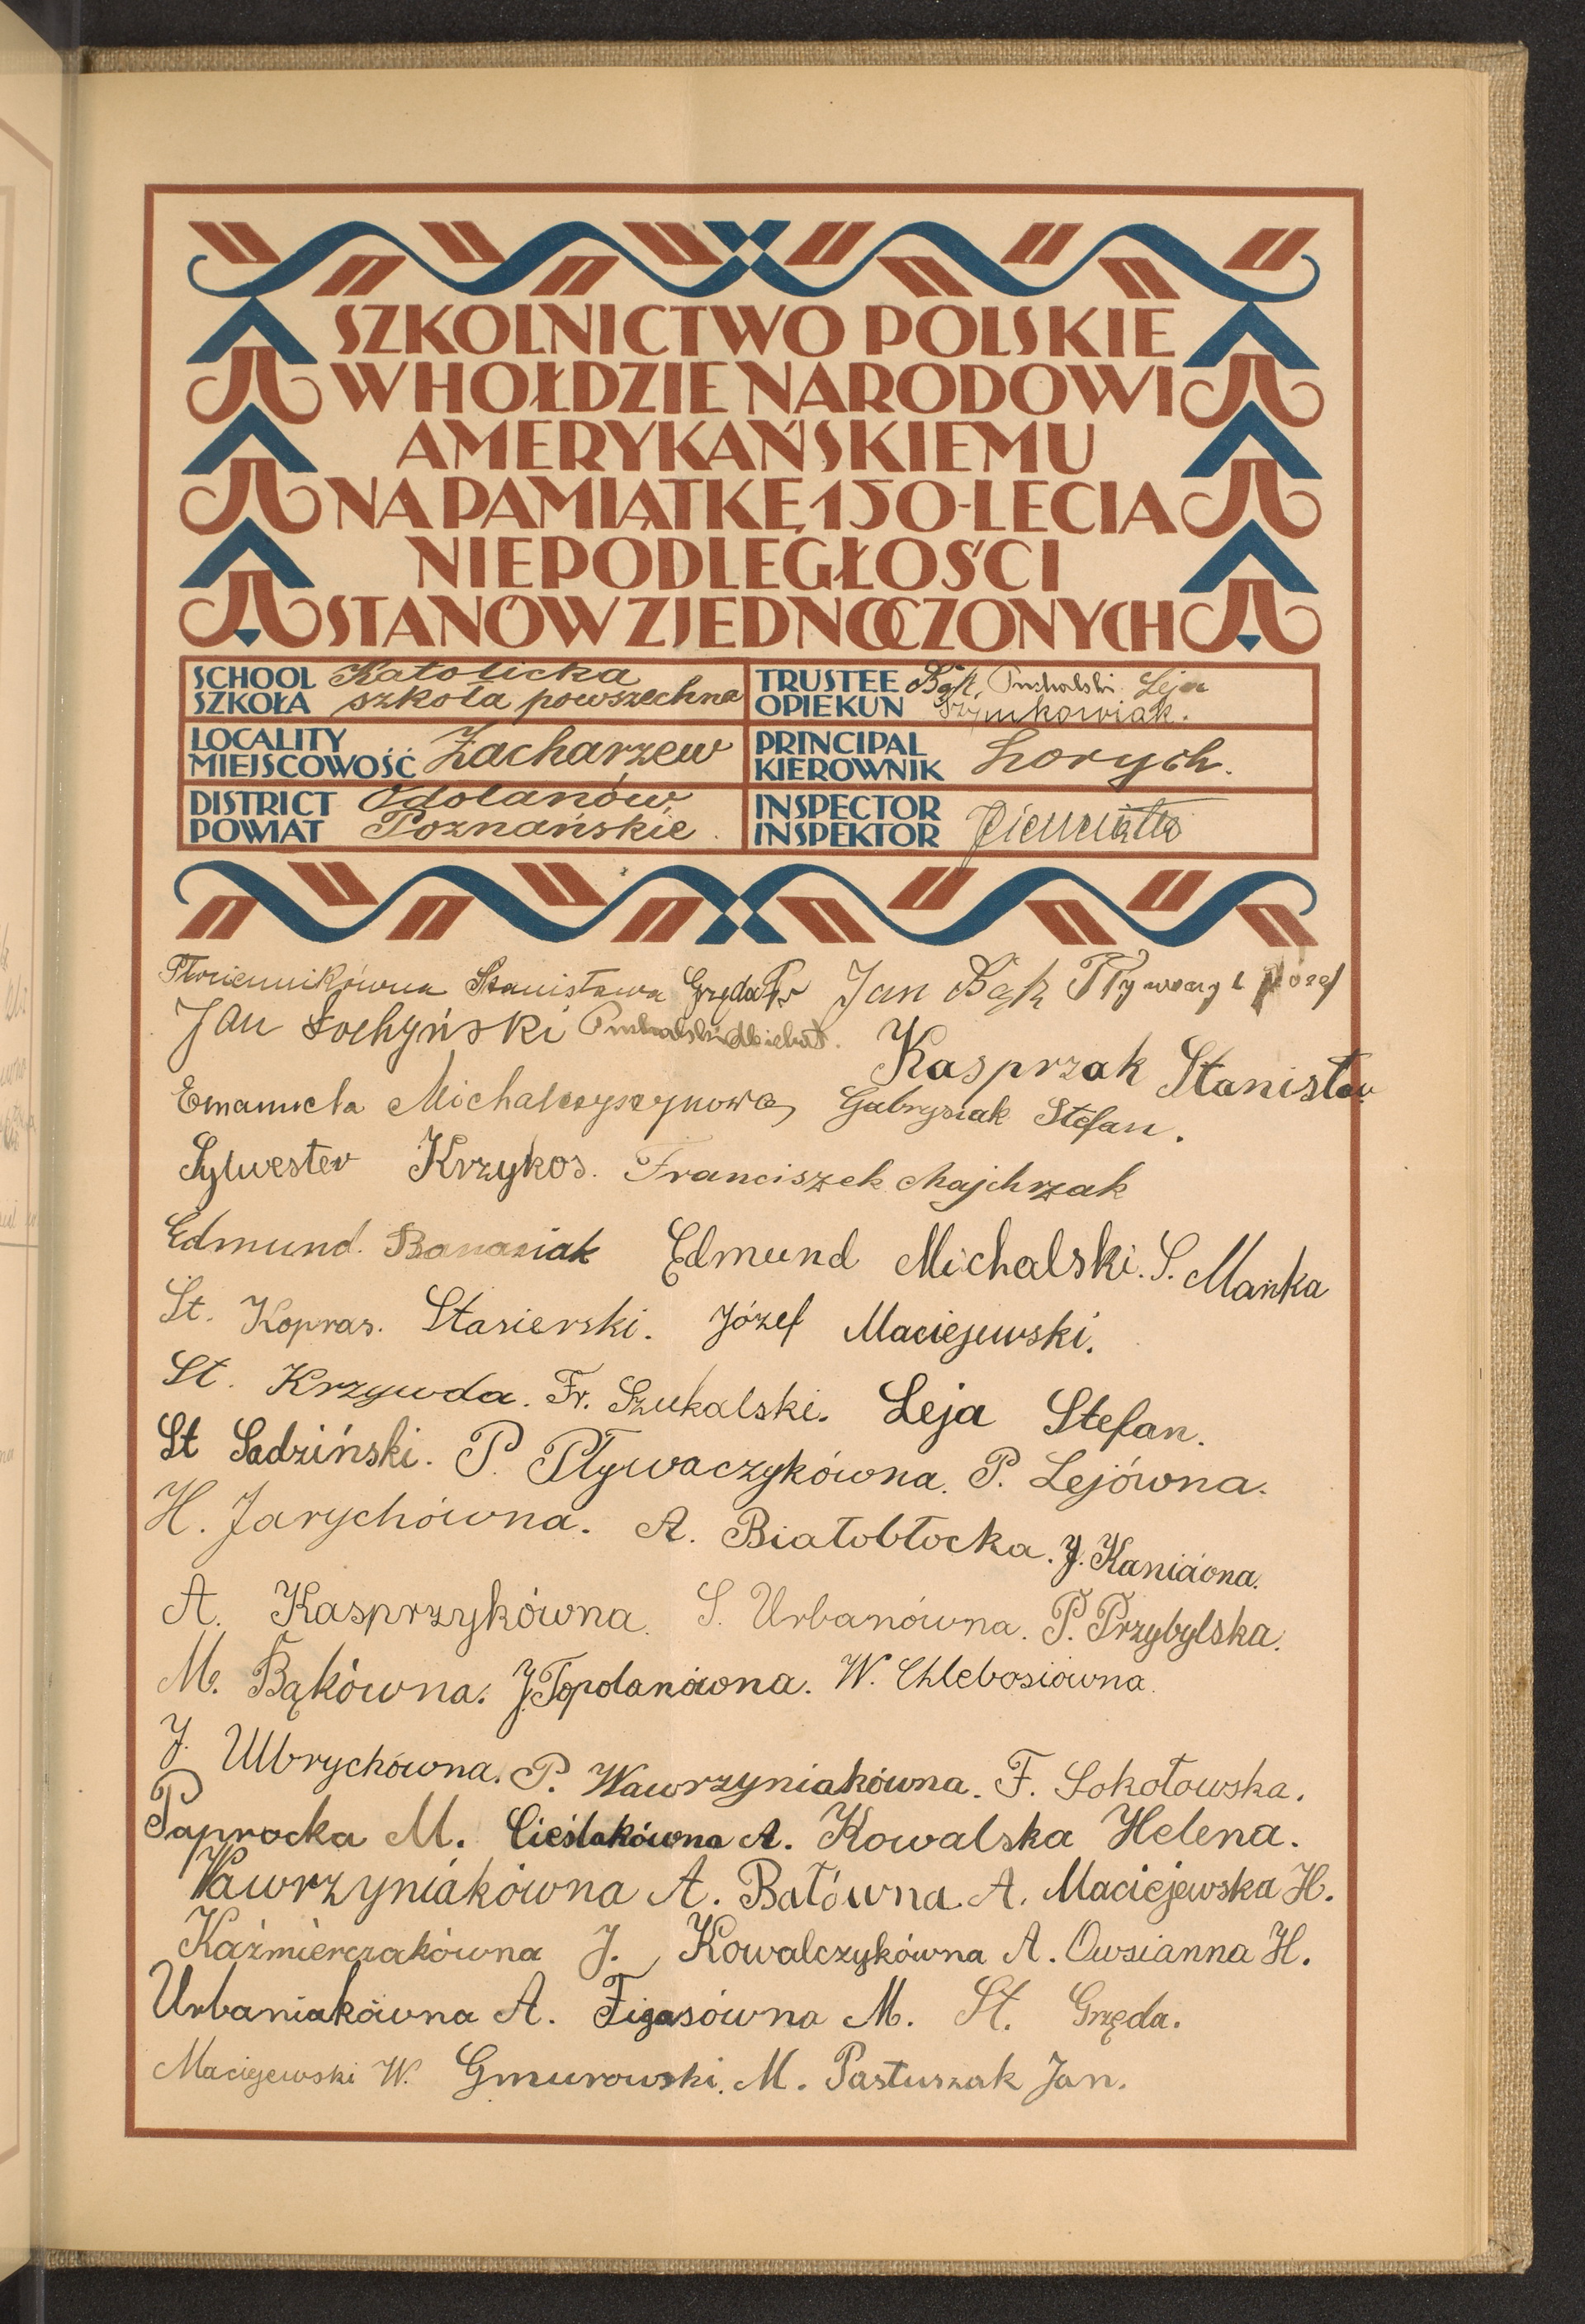 SZKOLNICTWO POLSKIE
W HOŁDZIE NARODOWI
AMERYKAŃSKIEMU
NA PAMIĄTKĘ 150-LECIA
NIEPODLEGŁOŚCI
STANÓW ZJEDNOCZONYCH
SCHOOL Katolicka
SZKOŁA szkoła powszechna
TRUSTEE Bąk, Puchalski Leja
OPIEKUN Szymkowiak.
LOCALITY
MIEJSCOWOŚĆ Zacharzew
PRINCIPAL
KIEROWNIK Lorych.
DISTRICT Odolanów,
POWIAT Poznańskie.
INSPECTOR
INSPEKTOR
Płóciennikówna Stanisława Gręda Fr Jan Bąk Pływaczyk Józef
Jan Łochyński Puchalski
Kasprzak Stanisław
Emanuela Michalczyszynowa, Gabrysiak Stefan.
Sylwester Krzykos. Franciszek Majchrzak
Edmund. Banasiak Edmund Michalski. S. Manka
St. Kopras. Stasierski. Józef Maciejewski.
St. Krzywda. Fr. Szukalski. Leja Stefan.
St Sadziński. P. Pływaczykówna. P. Lejówna.
H. Jarychówna. A. Białobłocka. J. Kaniaona.
A. Kasprzykówna. S. Urbanówna. P. Przybylska.
M. Bąkówna. J. Topolanówna. W. Chlebosiówna.
J. Ulbrychówna. P. Wawrzyniakówna. F. Sokołowska.
Paprocka M. Cieślakówna A. Kowalska Helena.
Wawrzyniakówna A. Batówna. A. Maciejewska H.
Kaźmierczakówna J. Kowalczykówna A. Owsianna H.
Urbaniakówna A. Figasówna M. St. Gręda.
Maciejewski W. Gmurowski. M. Pastuszak Jan.